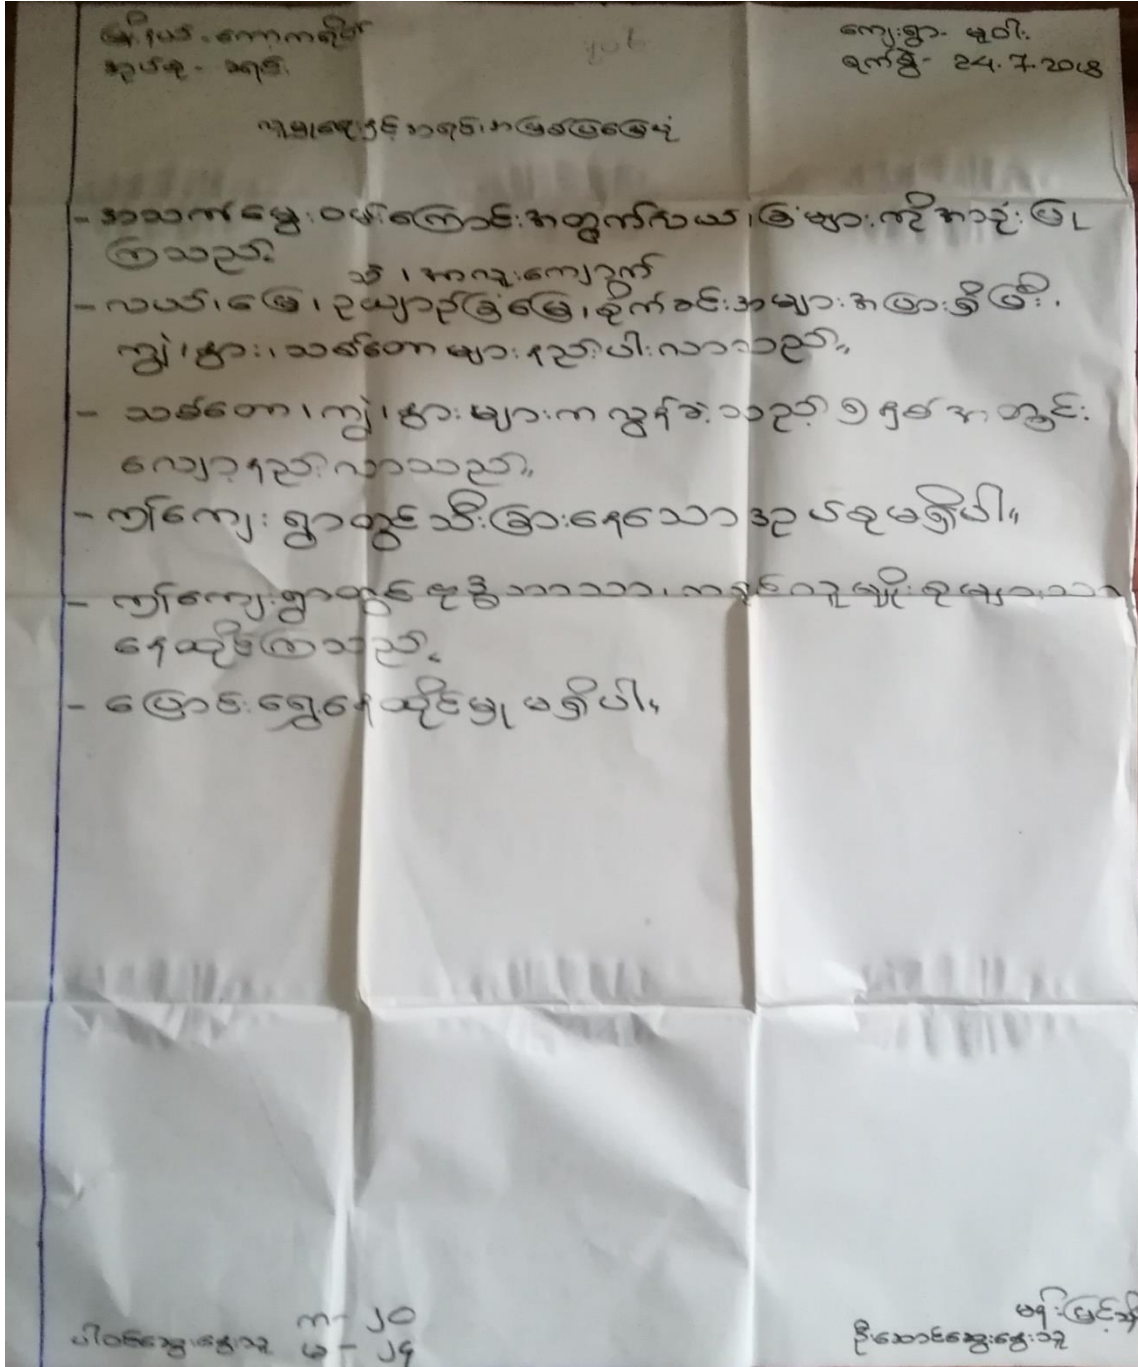 မြို့နယ် - ကော့ကရိတ်
ကျေးရွာ - မူဝါး
အုပ်စု -
ရက်စွဲ - 24.7.2018
လူမှုရေးနှင့်အရင်းအမြစ်ပြမြေပုံ
- အသက်မွေးဝမ်းကြောင်းအတွက်လယ်၊ ခြံများကိုအသုံးပြု
ကြသည်။
သီ၊ အာလူးကျောက်
- လယ်၊ မြေ၊ ဥယျာဉ်ခြံမြေ၊ စိုက်ခင်းအများအပြားရှိပြီး၊
ကျွဲ၊ နွား၊ သစ်တောများနည်းပါးလာသည်။
- သစ်တော၊ ကျွဲ၊ နွားများကလွန်ခဲ့သည့် ၅ နှစ်အတွင်း
လျော့နည်းလာသည်။
- ဤကျေးရွာတွင်သီးခြားနေသောအုပ်စုမရှိပါ။
- ဤကျေးရွာတွင်ဗုဒ္ဓဘာသာ၊ ကရင်လူမျိုးစုများသာ
နေထိုင်ကြသည်။
- ပြောင်းရွှေ့နေထိုင်မှုမရှိပါ။
ပါဝင်ဆွေးနွေးသူ
ကျ - ၂၀
မ - ၂၄
မန်းမြင့်
ဦးဆောင်ဆွေးနွေးသူ